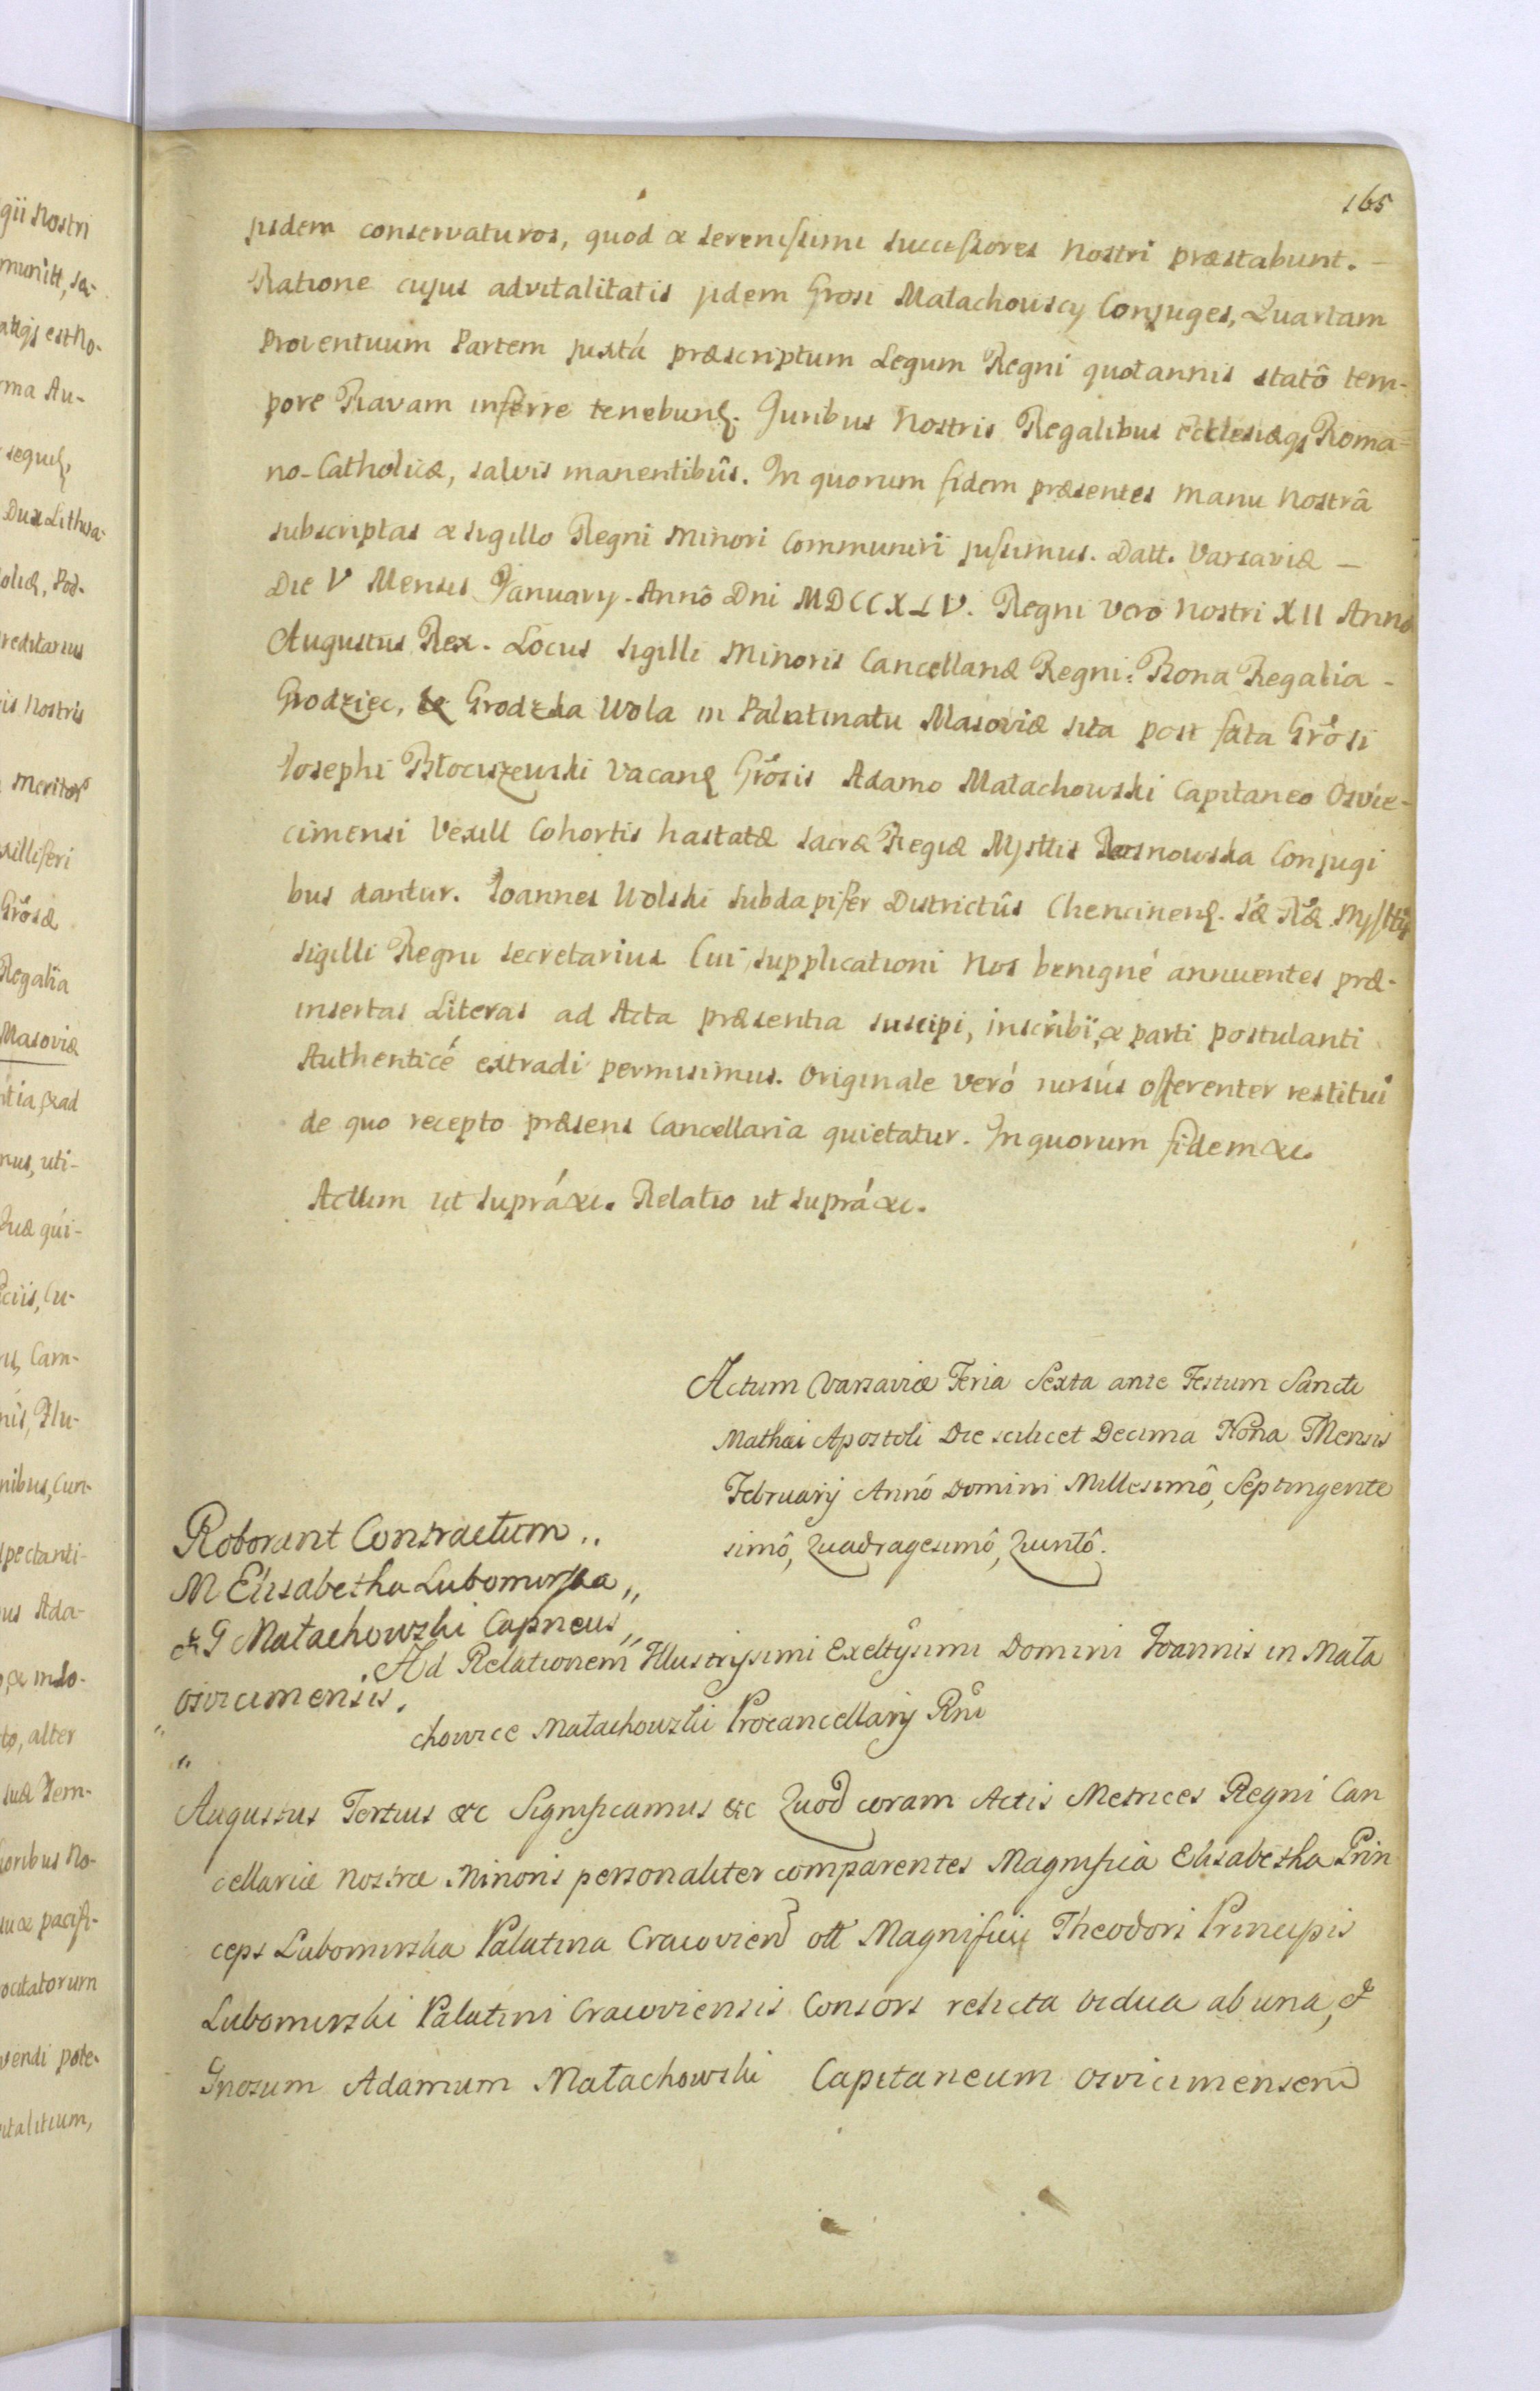 165
jisdem conservaturos, quod & serenissimi successores nostri præstabunt. –
Ratione cujus advitalitatis jidem Grosi Małachowscy Conjuges, Quartam
Proventuum Partem juxtá præscriptum Legum Regni quotannis statô tem-
pore Ravam inferre tenebunt. Juribus Nostris Regalibus Ecclesiæq; Roma=
no-Catholicæ, salvis manentibûs. In quorum fidem præsentes manu nostrâ
subscriptas & sigillo Regni Minori Communiri jussimus. Datt. Varsaviæ –
Die V Mensis January. Annô Dni MDCCXLV. Regni verò nostri XII Anno
Augustus Rex. Locus sigilli Minoris Cancellariæ Regni: Bona Regalia –
Grodziec, & Grodzka Wola in Palatinatu Masoviæ sita post fata Grôsi
Josephi Błociszewski Vacan Grôsis Adamo Małachowski Capitaneo Osvie-
cimensi Vexill Cohortis hastatæ sacræ Regiæ Mjsttis Rosnowska Conjugi
bus dantur. Joannes Wolski Subdapifer Districtûs Chencinen. Sæ Ræ Mjsttis
sigilli Regni secretarius Cui supplicationi Nos benigné annuentes præ-
insertas Literas ad Acta præsentia suscipi, inscribi, & parti postulanti
Authenticé extradi permisimus. Originale veró rursús offerenter restitui
de quo recepto præsens Cancellaria quietatur. In quorum fidem &c.
Actum ut suprá &c. Relatio ut suprá &c.
Actum Varsaviæ Feria Sexta ante Festum Sancti
Mathæi Apostoli Die scilicet Decima Nona Mensis
February Annó Domini Millesimô, Septingente
simô, Quadragesimô, Quintô.
Roborant Contractum ..
M Elisabetha Lubomirska ,,
et G Małachowski Capneus ,,
osvicimensis.
Ad Relationem Illustrissimi Exclťssimi Domini Joannis in Mała
chowice Małachowski Procancellarij Rni
Augustus Tertius &c Significamus &c Quod coram Actis Metrices Regni Can
cellariæ Nostræ Minoris personaliter comparentes Magnifica Elisabetha Prin
ceps Lubomirska Palatina Cracovien olt Magnifici Theodori Principis
Lubomirski Palatini Cracoviensis Consors relicta vidua ab una, et
Gnosum Adamum Małachowski Capitaneum osvicimensem